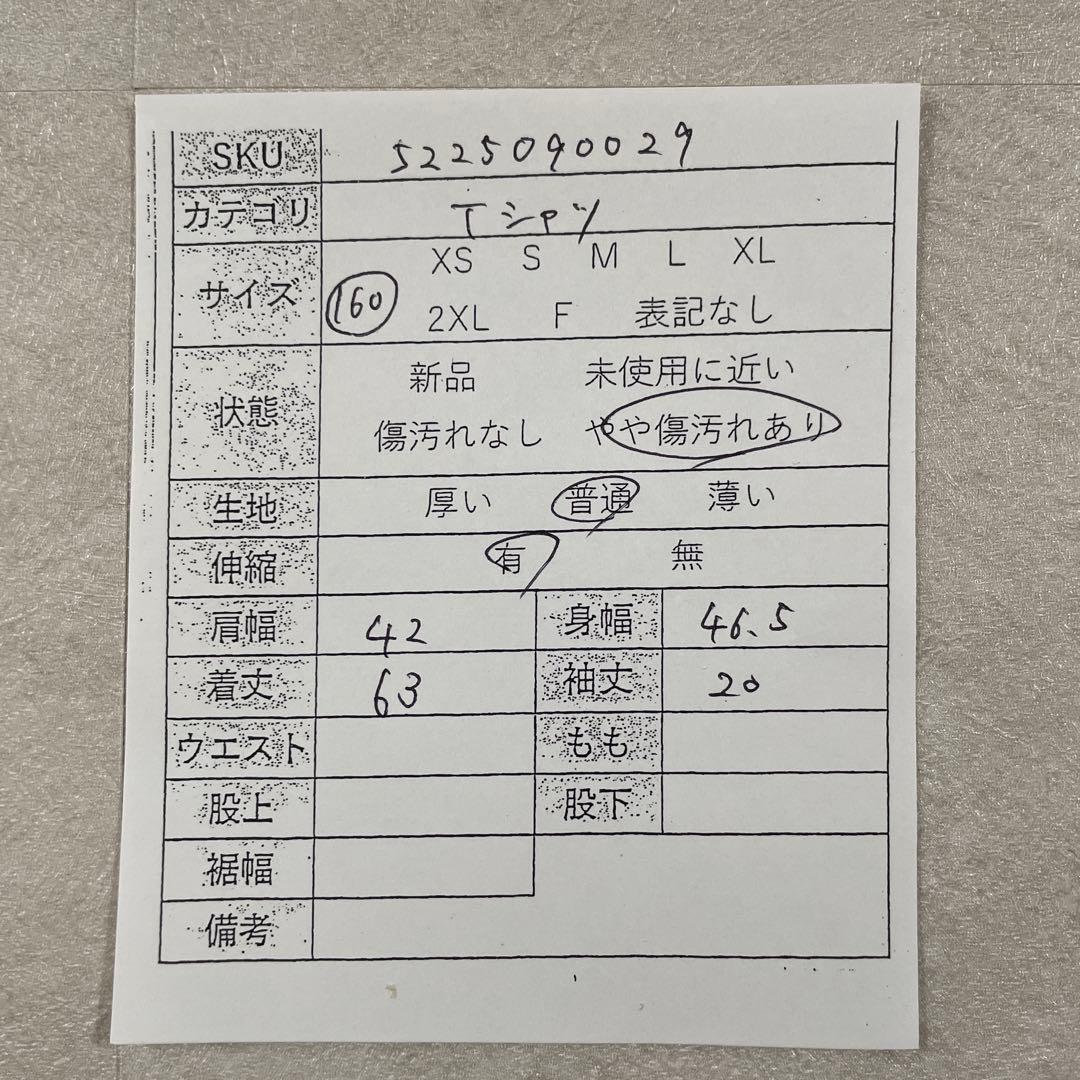 SKU 5225090029
カテゴリ Tシャツ
XS S M L XL
サイズ 160
2XL F 表記なし
新品 未使用に近い
状態
傷汚れなし やや傷汚れあり
生地 厚い 普通 薄い
伸縮 有 無
肩幅 42 身幅 46.5
着丈 63 袖丈 20
ウエスト もも
股上 股下
裾幅
備考